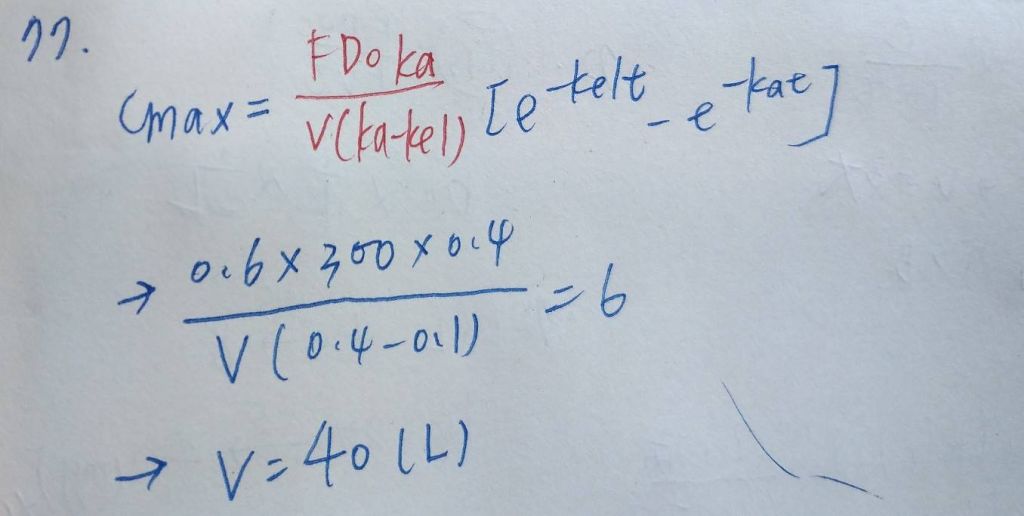 77.
Cmax = FD₀ka / V(ka-kel) [e^-kelt - e^-kat]
→ 0.6 × 300 × 0.4 / V(0.4-0.1) = 6
→ V = 40 (L)